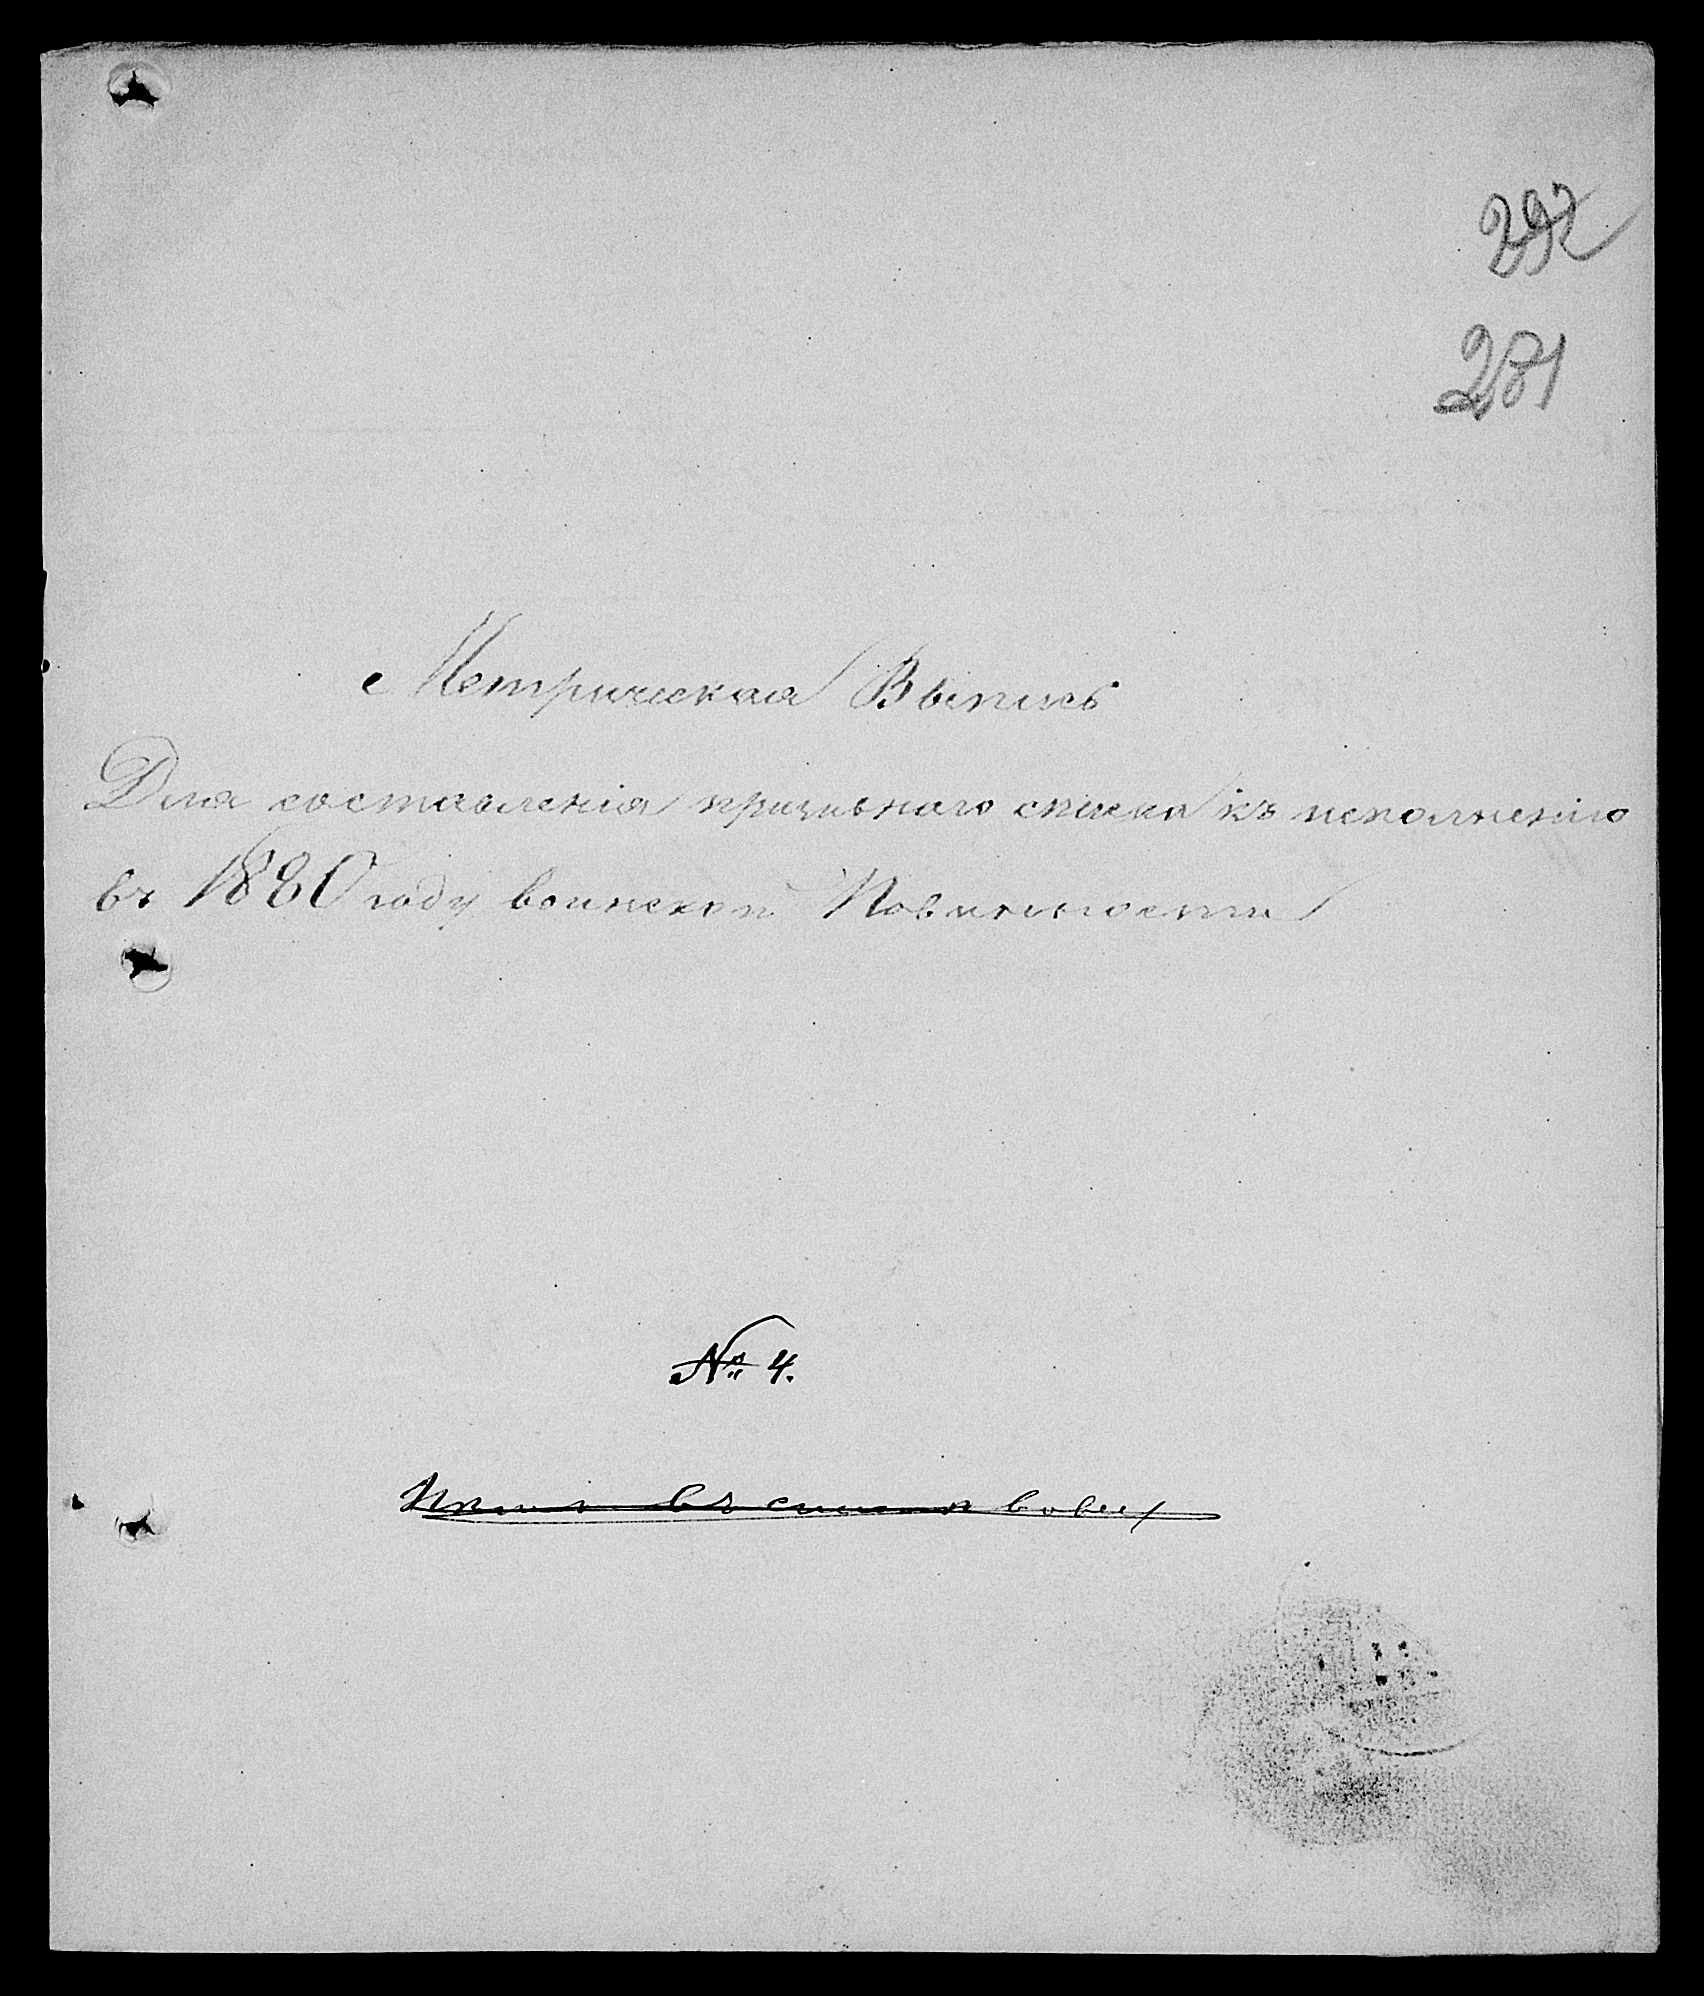 292
281
Метрическая Выпись
Для составленія призывнаго списка къ исполненію
въ 1880 году воинской Повинности
№ 4.
въ